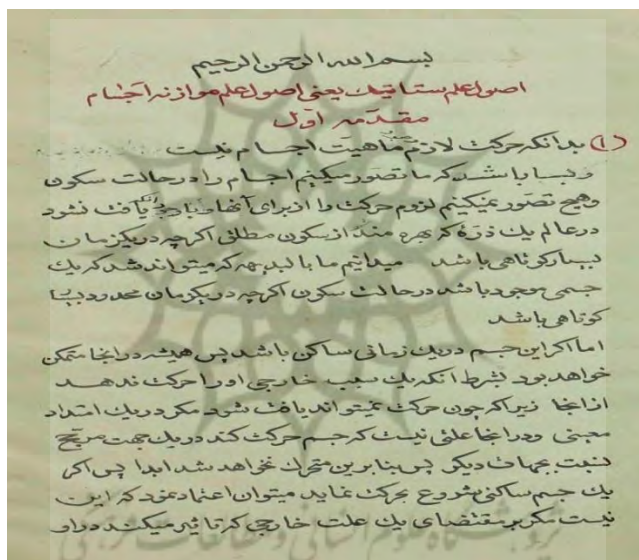 بسم الله الرحمن الرحیم
اصول علم ستاتیک یعنی اصول علم موازنه اجسام
مقدمه اول
(۱) بدانکه حرکت لازم ماهیت اجسام نیست
و بسا باشد که ما تصور میکنیم اجسام را در حالت سکون
و هیچ تصور نمیکنیم لزوم حرکت را از برای آنها و یافت نشود
در عالم یک ذره که بهره مند از سکون مطلق اگرچه در یکزمان
بسیار کوتاهی باشد میدانیم ما بالبدیهه که میتواند شد که یک
جسمی موجود باشد در حالت سکون اگرچه در یکزمان محدود بسیا
کوتاهی باشد
اما اگر این جسم در یک زمانی ساکن باشد پس همیشه در انجا متمکن
خواهد بود بشرط انکه یک سبب خارجی او را حرکت ندهد
از انجا زیرا که چون حرکت نمیتواند یافت شود مگر در یک امتداد
معینی و در انجا علتی نیست که جسم حرکت کند در یک جهت مرجح
نسبت بجهات دیگر پس بنابرین متحرک نخواهد شد ابدا پس اگر
یک جسم ساکنی شروع بحرکت نماید میتوان اعتماد نمود که این
نیست مگر بر مقتضای یک علت خارجی که تاثیر میکند در او